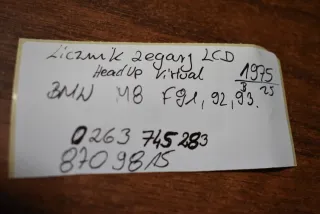 Licznik zegary LCD
Head Up Virtual
1975
3 25
BMW M8 F91, 92, 93.
0263 745 283
87098/15